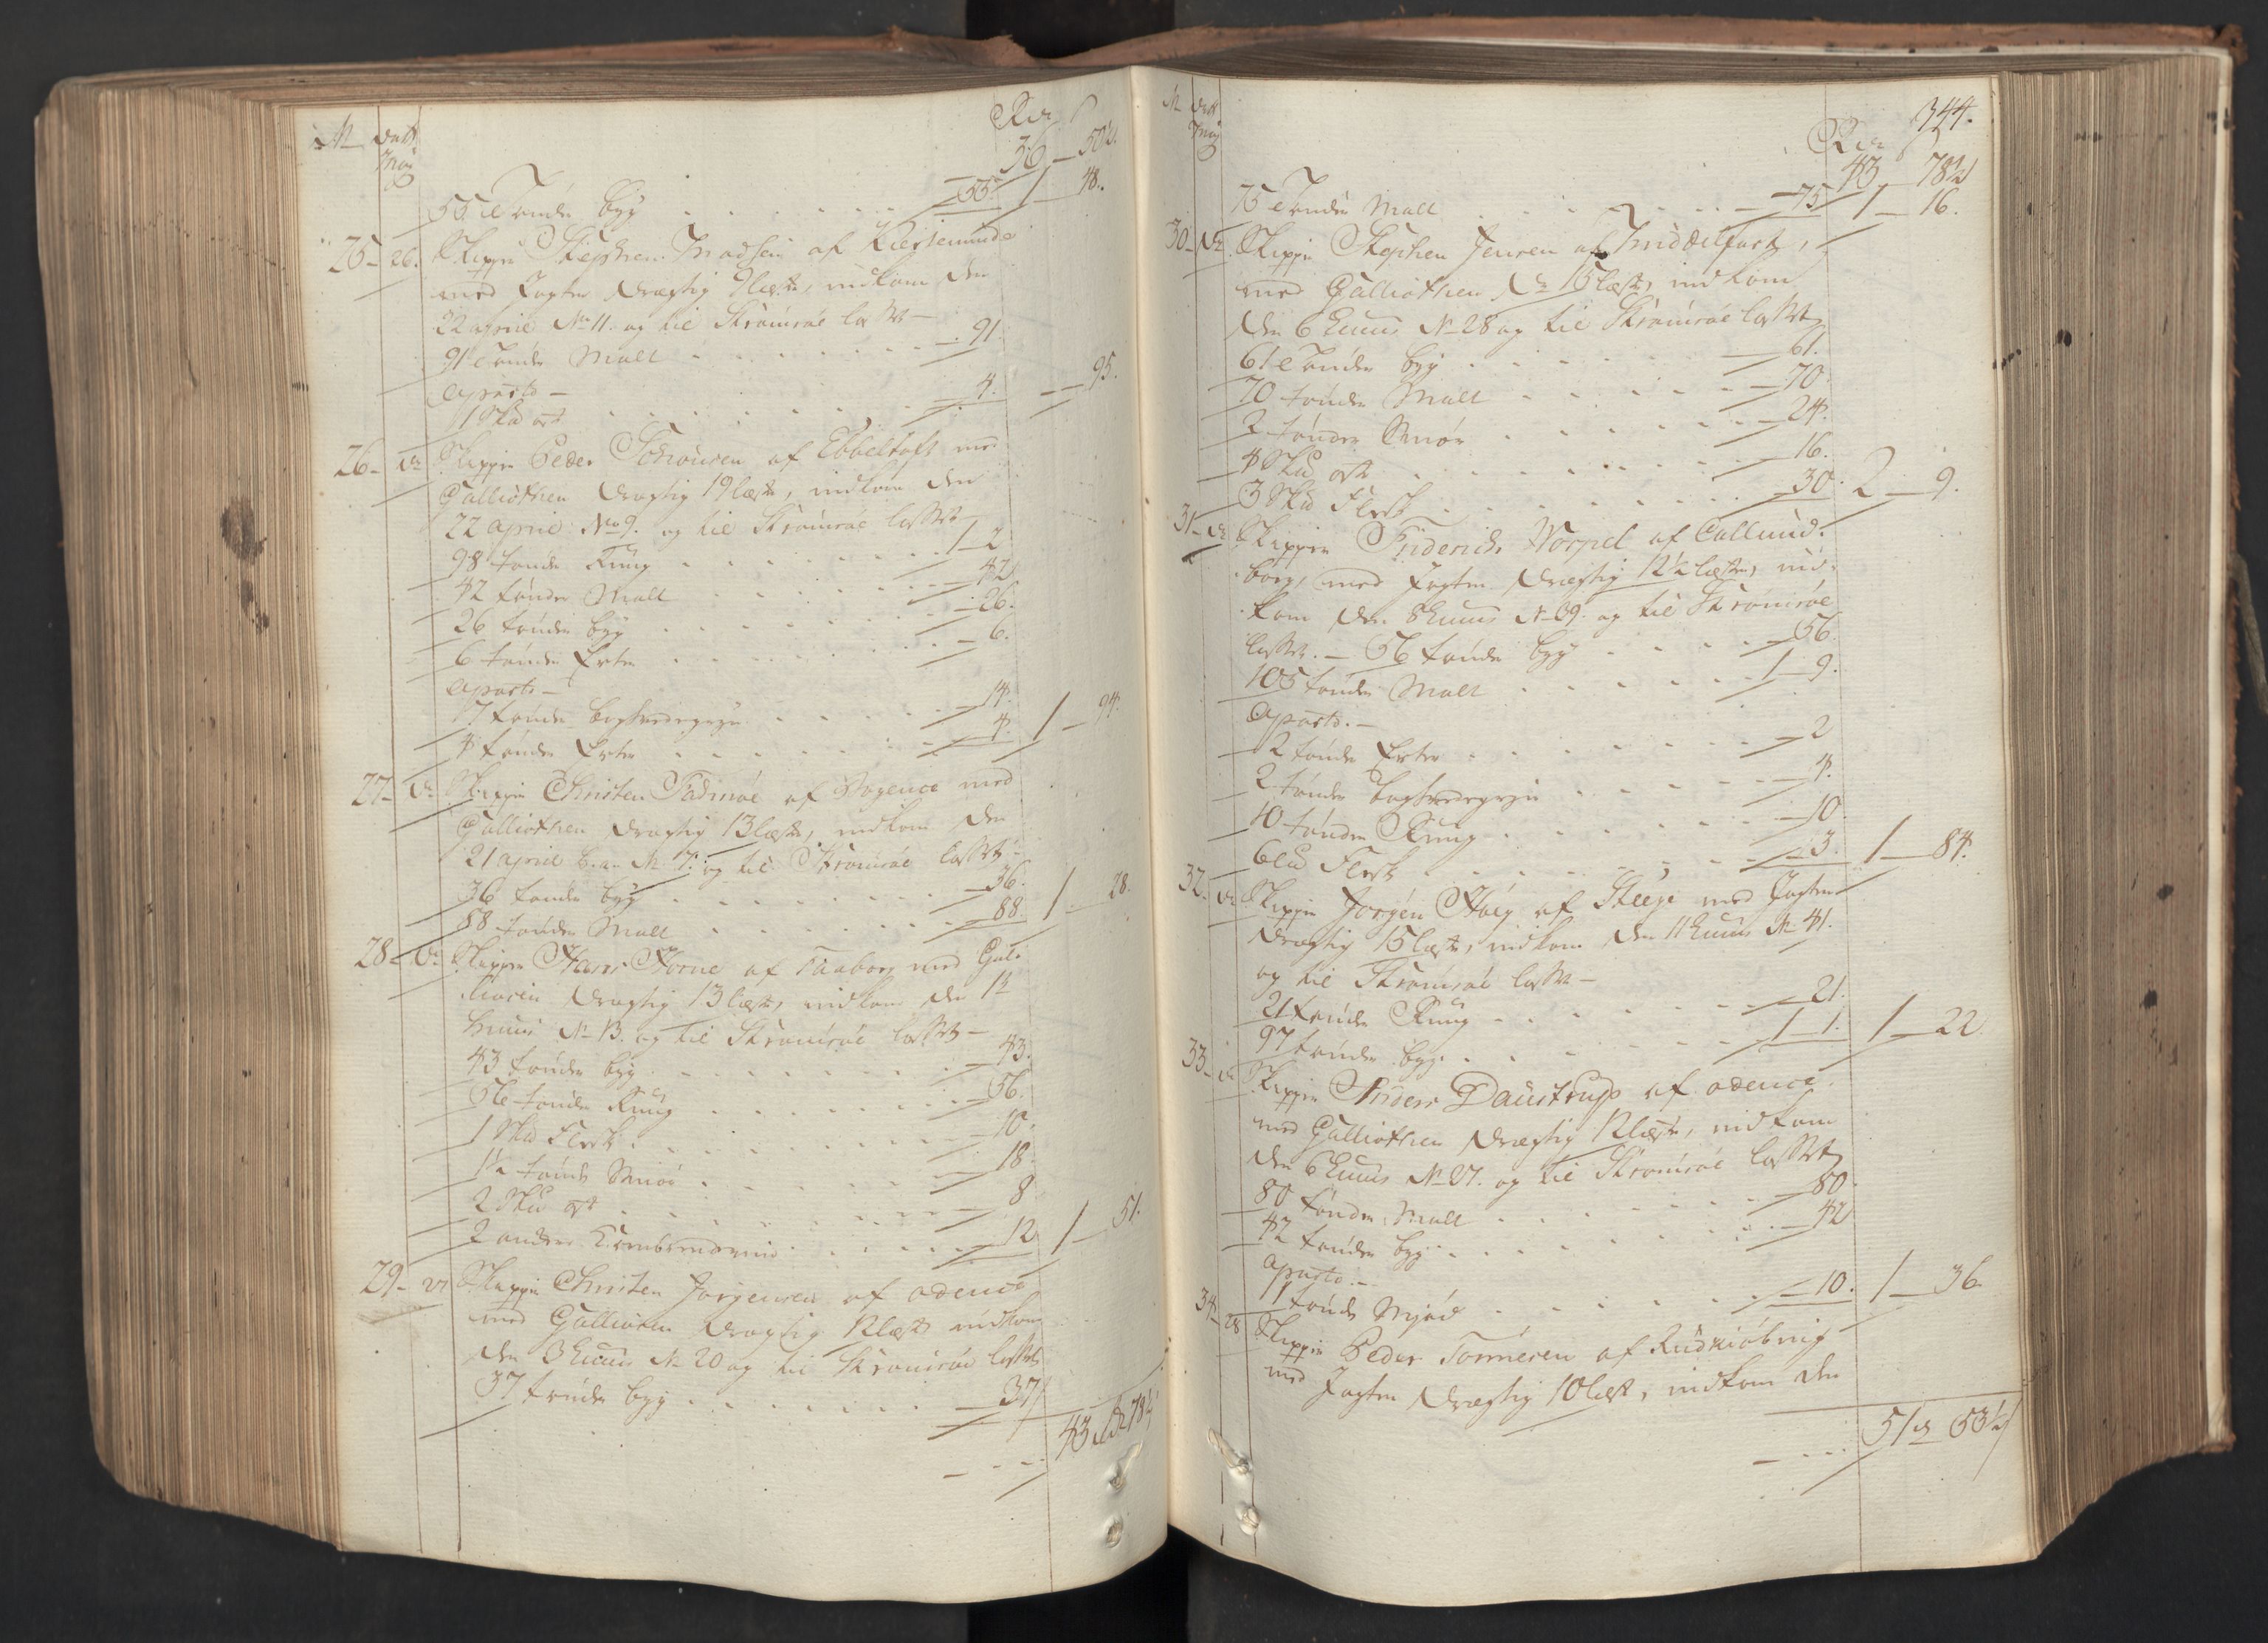 No Datt Rdr
Maj
36 – 50½.
55 Tønder byg . . . . . – 55. 1 – 48.
25 – 26. Skipper Stephen Madsen af Kierteminde
med Jagten drægtig 9 læster, indkom den
22 april No 11. og til Strømsøe losset –
91 Tønder Malt . . . . . – 91.
aparte –
1 Skd ost . . . . . – 4. – 95.
26 – do Skipper Peder Schousen af Ebbeltoft med
Galliothen drægtig 19 læster, indkom den
22 april No 9. og til Strømsøe losset –
98 tønder Rug . . . . . 1 – 2
42 tønder Malt . . . . . – 42
26 tønder byg . . . . . – 26.
6 tønder Erter . . . . . – 6.
aparte –
17 tønder boghvedegryn . . . . . – 14.
4 tønder Erter . . . . . – 4. 1 – 94.
27 – do Skipper Christen Fadmøe af Bogence med
Galliothen drægtig 13 læster, indkom den
21 april No 7. og til Strømsøe losset –
36 tønder byg . . . . . – 36.
88 tønder Malt . . . . . – 88. 1 – 28.
28 – do Skipper Hans Horne af Faaborg med Gal-
liothen drægtig 13 læster, indkom den 1te
huius No 13. og til Strømsøe losset –
43 tønder byg . . . . . – 43.
56 tønder Rug . . . . . – 56.
1 Skd Flesk . . . . . – 10.
1½ tønde Smør . . . . . – 18.
2 Skd ost . . . . . – 8
2 anker Kornbrendeviin . . . . . – 12 1 – 51.
29 – 27 Skipper Christen Jørgensen af odence
med Galliothen drægtig 12 læster indkom
den 3 huius No 20 og til Strømsøe losset
37 tønder byg . . . . . – 37
43 Rdr 78½
344.
No Datt Rdr
Maj
43 – 78½
75 Tønder Malt . . . . . – 75 1 – 16.
30 – do Skipper Stephen Jensen af Middelfart,
med Galliothen, do 15 læster, indkom
den 6 huius No 28 og til Strømsøe losset
61 Tønder byg . . . . . – 61.
70 tønder Malt . . . . . – 70.
2 tønder Smør . . . . . – 24.
4 Skd ost . . . . . – 16.
3 Skd Flesk . . . . . – 30. 2 – 9.
31 – do Skipper Friderich Worpel af Callund-
borg, med Jagten drægtig 12½ læster, ind-
kom den 8 huius No 39. og til Strømsøe
losset. – 56 tønder byg . . . . . – 56.
105 tønder Malt . . . . . 1 – 9.
aparte. –
2 tønder Erter . . . . . – 2
2 tønder boghvedegryn . . . . . – 4.
10 tønder Rug . . . . . – 10.
6 Ld Flesk . . . . . – 3. 1 – 84.
32. do Skipper Jørgen Høeg af Steege med Jagten
drægtig 15 læster, indkom den 11 huius No 41.
og til Strømsøe losset –
21 tønder Rug . . . . . – 21.
97 tønder byg . . . . . 1 – 1. 1 – 22
33 – do Skipper Anders Daustrup af odence,
med Galliothen drægtig 12 læster, indkom
den 6 huius No 27. og til Strømsøe losset
80 tønder Malt . . . . . – 80.
42 tønder byg . . . . . – 42
aparte. –
11 tønde Mjød . . . . . – 10. 1 – 36.
34 – 28 Skipper Peder Tønnesen af Rudkiøbing
med Jagten drægtig 10 læst, indkom den
51 Rdr 53½